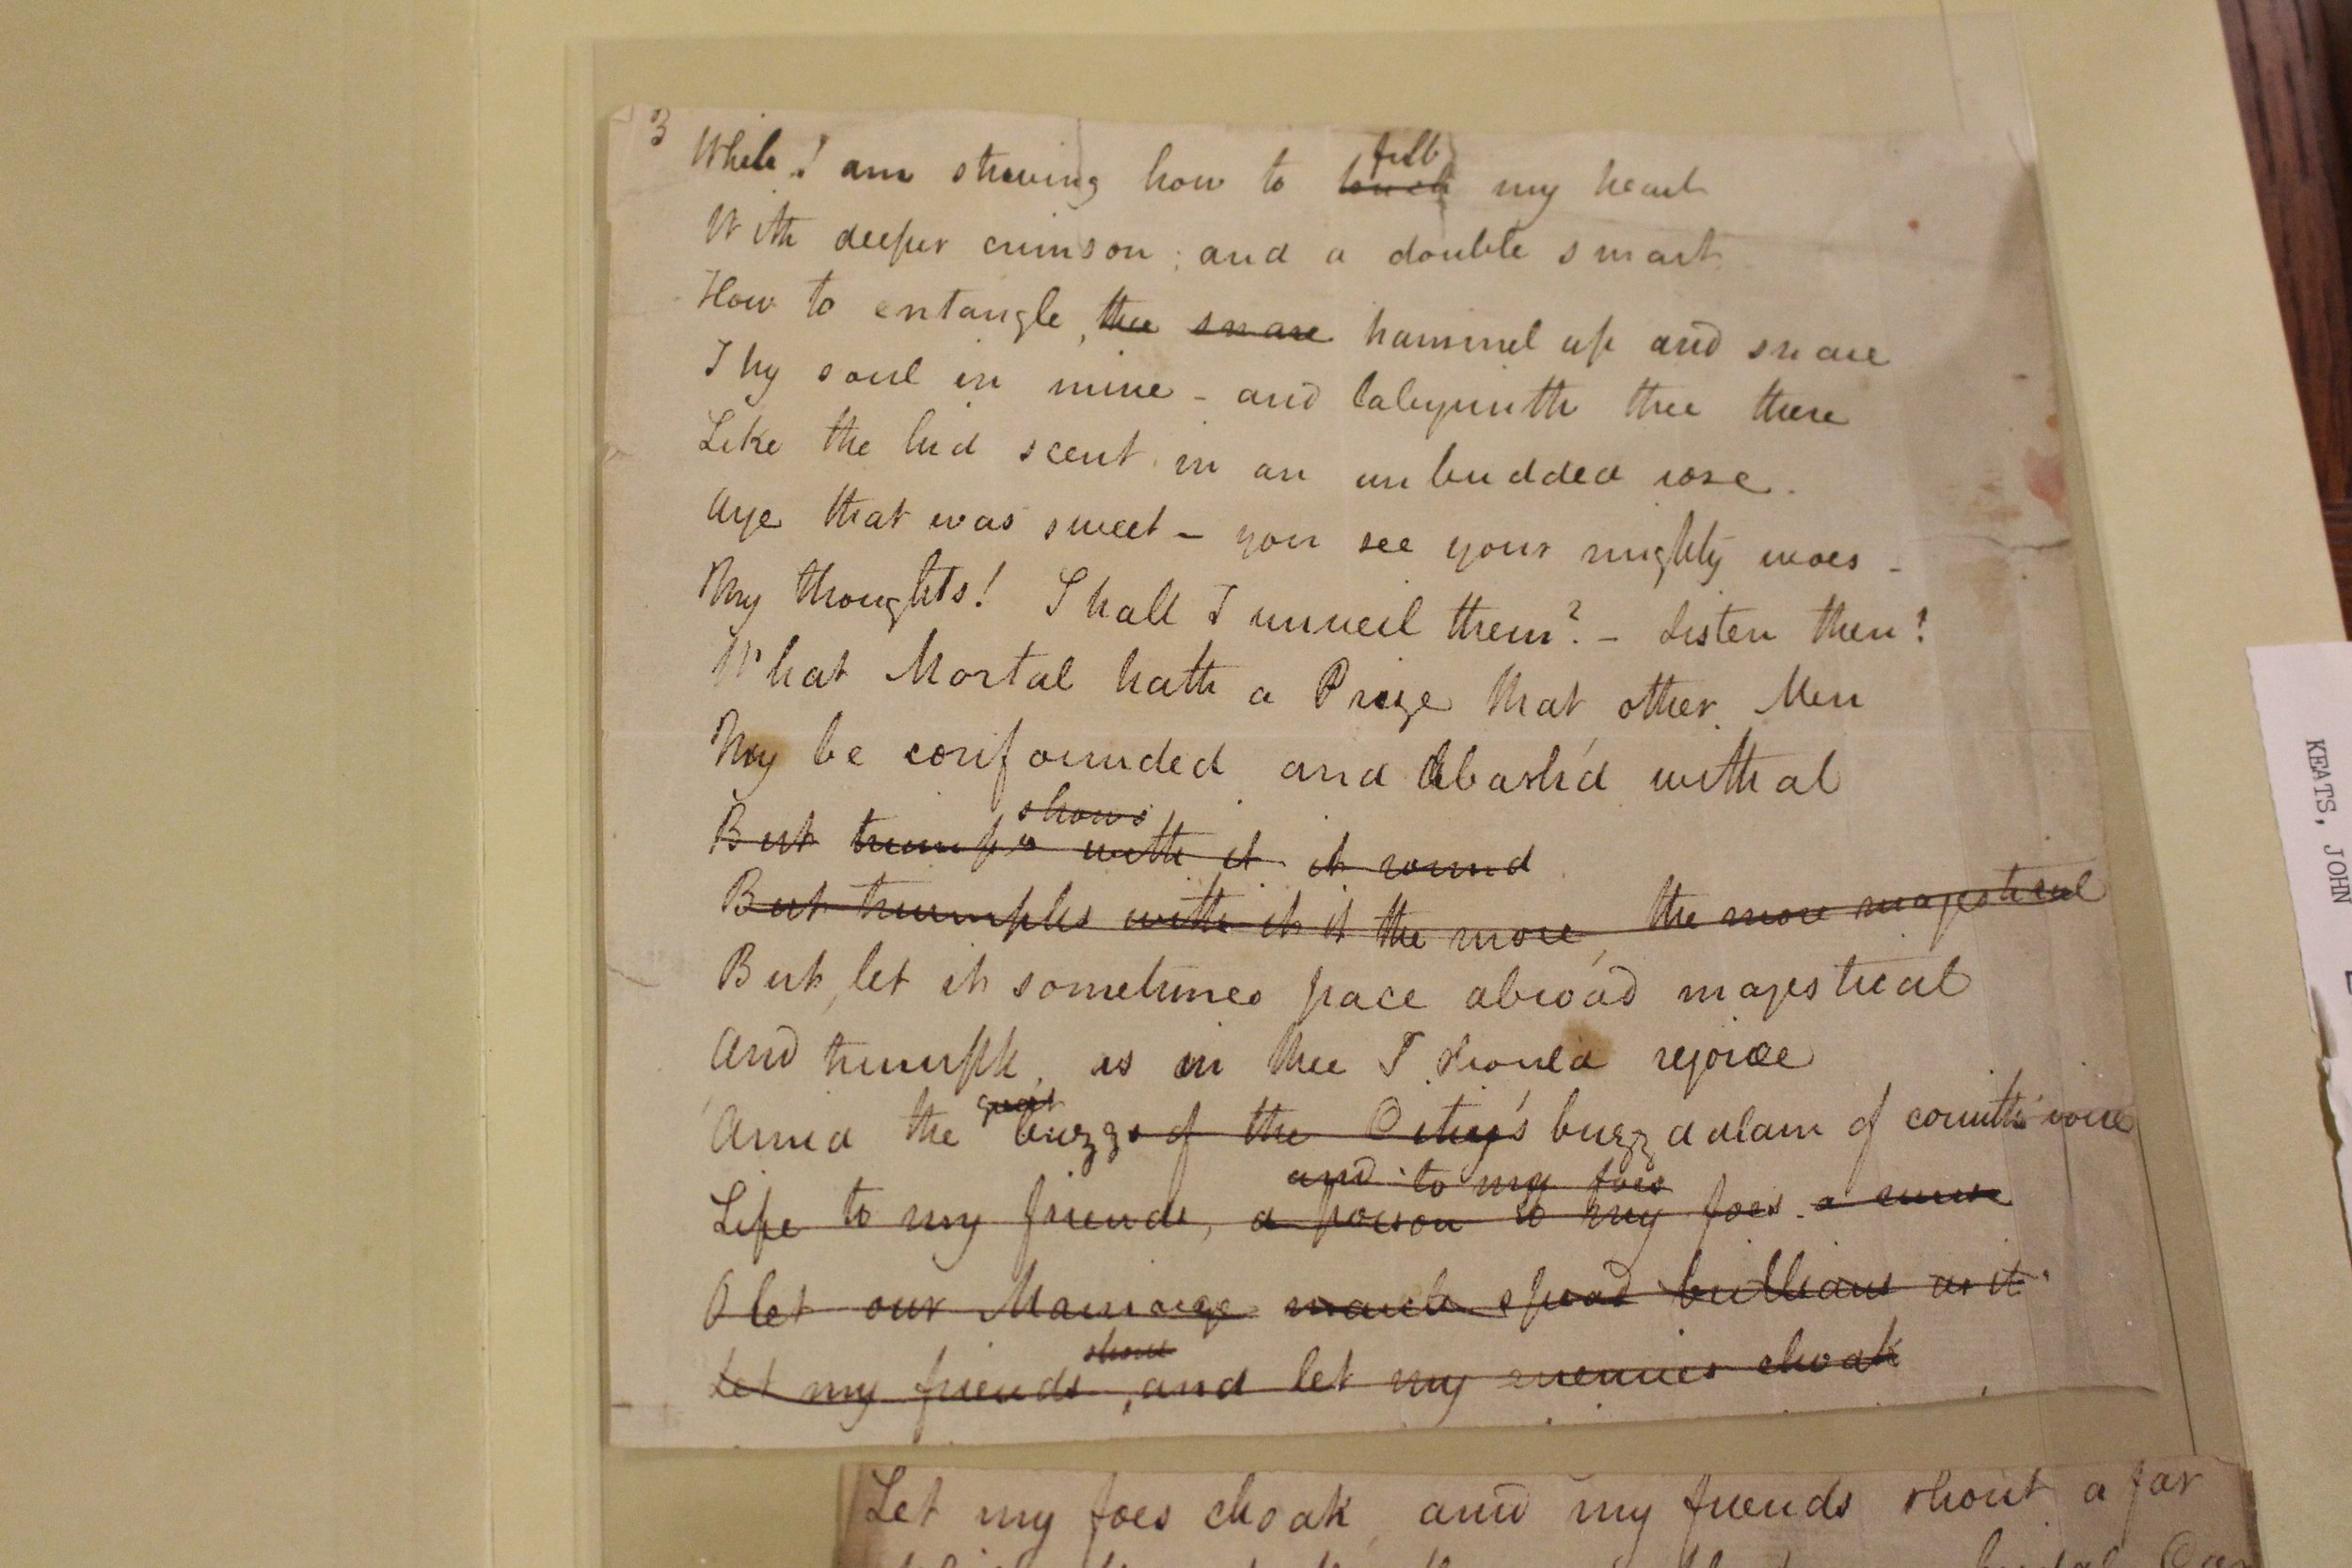 3
While I am striving how to fill touch my heart
With deeper crimson, and a double smart
How to entangle, thee snare trammel up and snare
Thy soul in mine - and labyrinth thee there
Like the hid scent in an unbudded rose.
Aye that was sweet - you see your mighty woes -
My thoughts! Shall I unveil them? - Listen then!
What Mortal hath a Prize that other Men
May be confounded and abash'd withal
shows
But triumphs with it it round
But triumphs with it it the more, the more majestical
But let it sometimes pace abroad majestical
And triumph, as in thee I should rejoice
great
Amid the buzzgs of the City's buzz a alarm of corinth's voice
and to my foes
Life to my friends, a poison to my foes. a curse
O let our Marriage march spread brilliant as it
shout
Let my friends, and let my enemies choak
Let my foes choak, and my friends shout afar
KEATS, JOHN